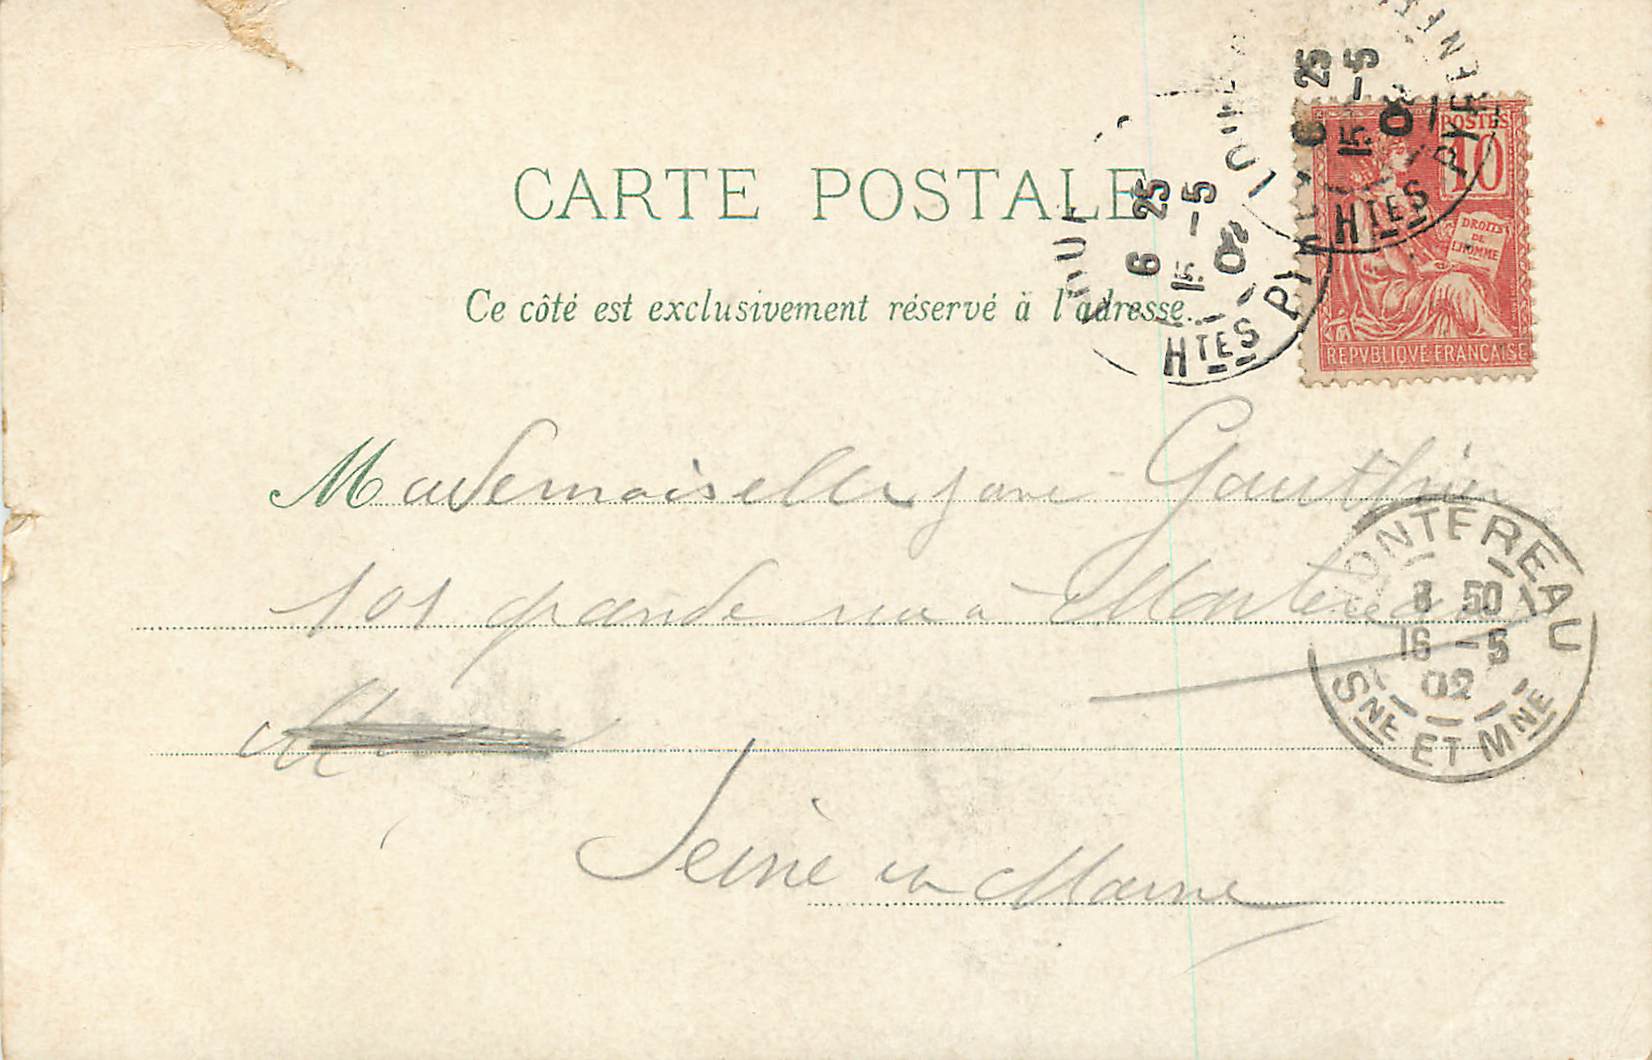 CARTE POSTALE
Ce côté est exclusivement réservé à l'adresse.
POSTES
10
DROITS
DE
L'HOMME
REPVBLIQVE FRANCAISE
6 25
15 - 5
02
Htes PYR
6 25
15 - 5
02
Htes PYR
Mademoiselle Jane Gauthier
101 grande rue à Montereau
Seine et Marne
MONTEREAU
8 50
16 - 5
02
Sne ET Mne